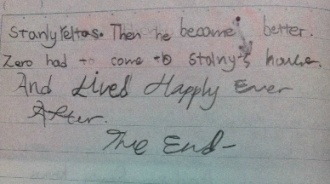 Stanly yeltas. Then he become better.
Zero had to come to Stalny's house.
And Lived Happly Ever
After.
The End-